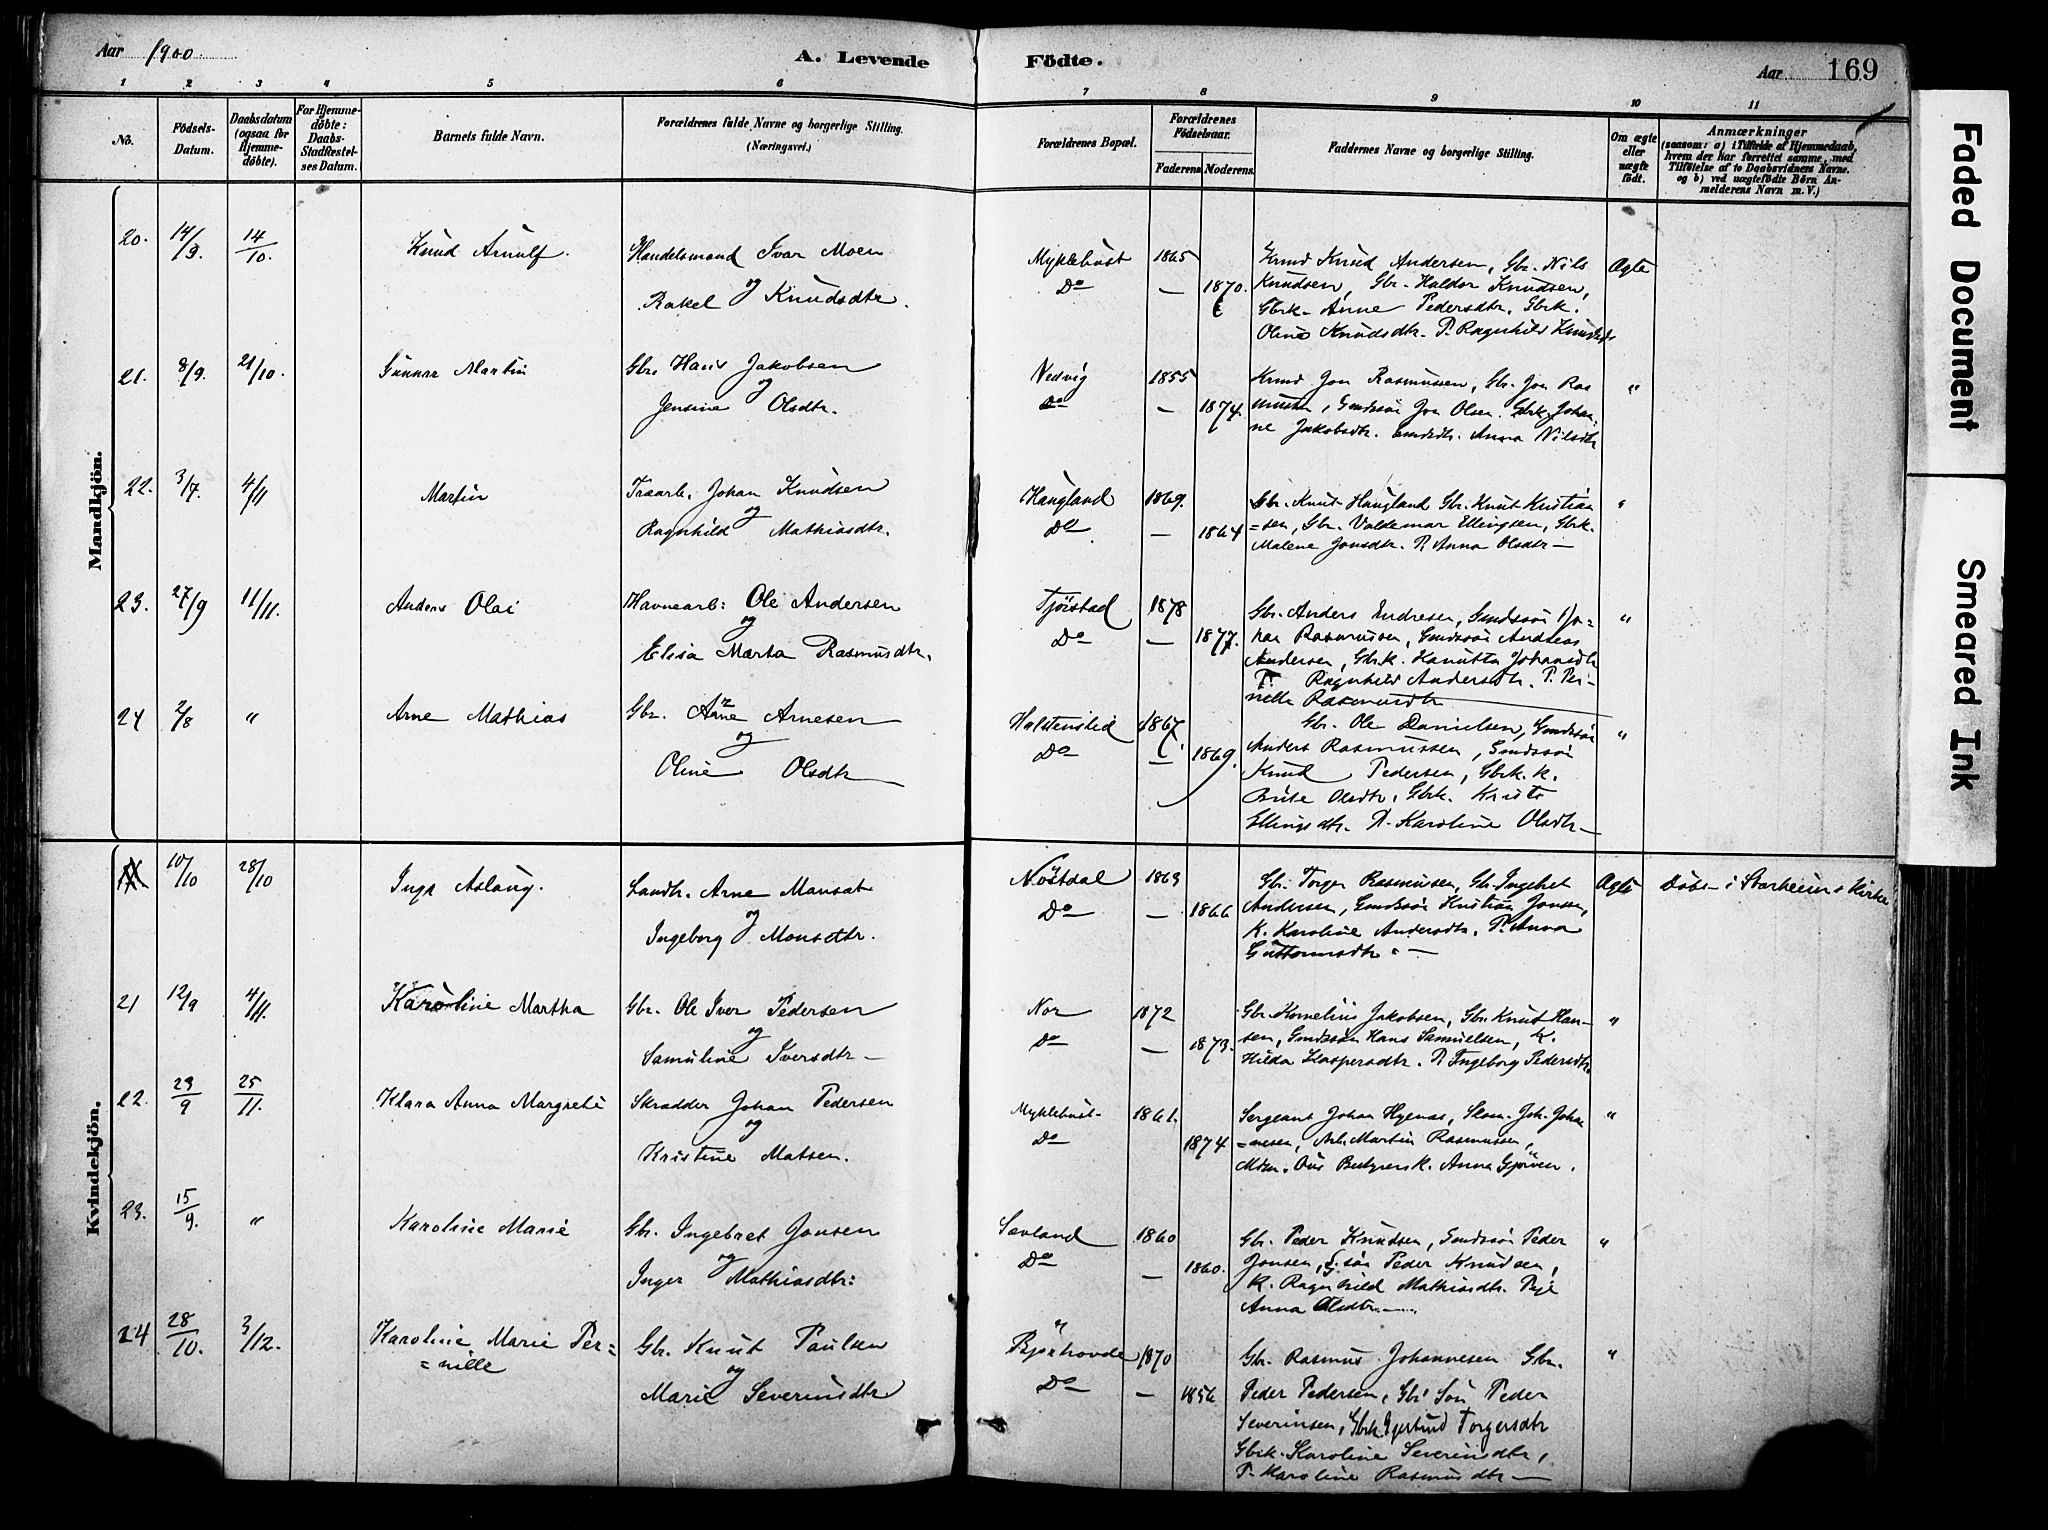 Aar 1900
A. Levende
Födte.
Aar
169
1 2 3 4 5 6 7 8 9 10 11
No.
Födsels-
Datum.
Daabsdatum
(ogsaa for
Hjemme-
döbte).
For Hjemme-
döbte:
Daabs-
Stadfæstel-
ses Datum.
Barnets fulde Navn.
Forældrenes fulde Navne og borgerlige Stilling.
(Næringsvei.)
Forældrenes Bopæl.
Forældrenes
Födselsaar.
Faderens Moderens
Faddernes Navne og borgerlige Stilling.
Om ægte
eller
uægte
födt.
Anmærkninger
(saasom: a) i Tilfælde af Hjemmedaab,
hvem der har forrettet samme, med
Tilföielse af to Daabsvidners Navne.
og b) ved uægtefödte Börn An-
melderens Navn m. V.)
Mandkjön.
20. 14/9. 14/10. Knud Arnulf Handelsmand Ivar Moen
og
Rakel Knudsdtr.
Myklebust 1865
Do — 1870.
Grmd Knud Andersen, Gbr. Nils
Knudsen, Gbr. Haldor Knudsen,
Gbrk. Anne Pedersdtr. Gbrk.
Oline Knudsdtr. P. Ragnhild Knudsdtr
Ægte
21. 8/9. 21/10. Gunnar Martin Gbr. Hans Jakobsen
og
Jensine Olsdtr.
Nedvig 1855
Do — 1874.
Krmd Jon Rasmussen, Gbr. Jon Ras
mussen, Gmdssön Jon Olsen. Gbrk. Johan-
ne Jakobsdtr. Gmdsdtr. Anna Nilsdtr
"
22. 3/7. 4/11 Martin Traarb. Johan Knudsen
og
Ragnhild Mathiasdtr.
Haugland 1869.
Do — 1864
Gbr. Knut Haugland Gbr. Knut Kristian
=sen, Gbr. Valdemar Ellingsen, Gbrk.
Malene Jonsdtr. P. Anna Olsdtr —
"
23. 27/9 11/11. Anders Olai Havnearb: Ole Andersen
og
Elisa Marta Rasmusdtr.
Tjöistad 1878
Do — 1877.
Gbr. Anders Endresen, Gmdssön Jo-
han Rasmussen, Gmdssön Andreas
Andersen, Gbrk. Hanutta Johansdtr
P. Ragnhild Andersdtr. P. Per-
nille Rasmusdtr
"
24 2/8 " Arne Mathias Gbr. Arne Arnesen
og
Oline Olsdtr
Halstensted 1867
Do — 1869.
Gbr. Ole Danielsen, Gmdssön
Anders Rasmussen, Gmdssön
Knud Pedersen, Gbrk. k.
Brite Olsdtr, Gbrk. Kristi
Ellingsdtr. P. Karoline Olsdtr —
"
Kvindekjön.
10/10 28/10 Inga Aslaug. Landh. Arne Mansat
og
Ingeborg Monsdtr.
Nöstdal 1863
Do — 1866
Gbr. Torger Rasmussen, Gbr. Ingebret
Andersen, Gmdssön Kristian Jonsen,
K. Karoline Andersdtr. P. Anna
Guttormsdtr. —
Ægte
Döbt i Starheims Kirke
21 12/9 4/11. Karoline Martha Gbr. Ole Iver Pedersen
og
Samuline Iversdtr —
Nor 1872
Do — 1873.
Gbr. Kornelius Jakobsen, Gbr. Knut Han-
sen, Gmdssön Hans Samuelsen, K.
Hilda Kaspersdtr. P. Ingeborg Pedersdtr.
"
22. 23/9 25/11. Klara Anna Margrete Skrædder Johan Pedersen
og
Kristine Matsen.
Myklebust- 1861.
Do 1874
Sergeant Johan Hyenæs, Skom. Joh. Johan
=nesen, Arb. Martin Rasmussen,
Anna Gjörven.
"
23. 15/9. " Karoline Marie Gbr. Ingebret Jonsen
og
Inger Mathiasdtr:
Sævland 1860
Do — 1860.
Gbr. Peder Knudsen, Gmdssön Peder
Jonsen, G. sön Peder Knudsen,
K. Ragnhild Mathiasdtr. Pige
Anna Olsdtr.
"
24 28/10. 3/12. Karoline Marie Per=
=nille
Gbr. Knut Paulsen
og
Marie Severinsdtr
Bjørhovde 1870
Do — 1856
Gbr. Rasmus Johannesen Gbr.
Peder Pedersen, Gbr Sön Peder
Severinsen, Gbrk. Gjertrud Torgersdtr
Gbrk. Karoline Severinsdtr,
P. Karoline Rasmusdtr —
"
Faded Document
Smeared Ink